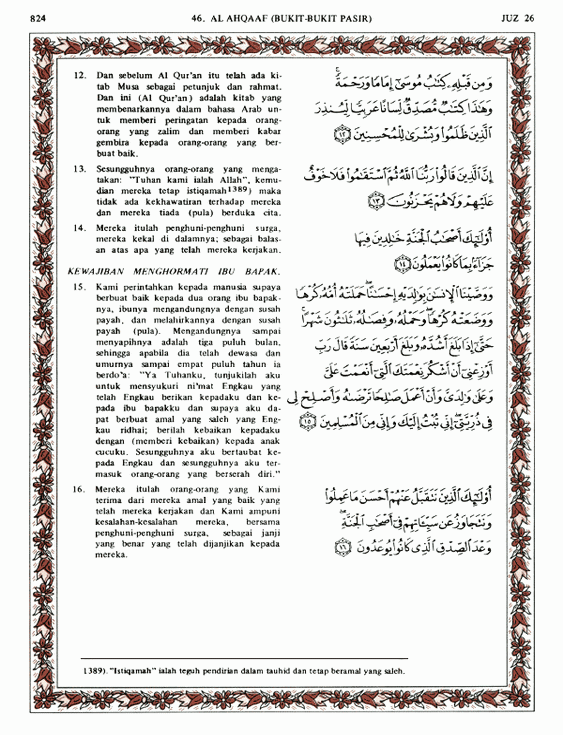 824
46. AL AHQAAF (BUKIT-BUKIT PASIR)
JUZ 26
12. Dan sebelum Al Qur'an itu telah ada ki-
tab Musa sebagai petunjuk dan rahmat.
Dan ini (Al Qur'an) adalah kitab yang
membenarkannya dalam bahasa Arab un-
tuk memberi peringatan kepada orang-
orang yang zalim dan memberi kabar
gembira kepada orang-orang yang ber-
buat baik.
وَمِن قَبْلِهِۦ كِتَٰبُ مُوسَىٰٓ إِمَامًا وَرَحْمَةً ۚ
وَهَٰذَا كِتَٰبٌ مُّصَدِّقٌ لِّسَانًا عَرَبِيًّا لِّيُنذِرَ
ٱلَّذِينَ ظَلَمُوا۟ وَبُشْرَىٰ لِلْمُحْسِنِينَ ١٢
13. Sesungguhnya orang-orang yang menga-
takan: "Tuhan kami ialah Allah", kemu-
dian mereka tetap istiqamah1389) maka
tidak ada kekhawatiran terhadap mereka
dan mereka tiada (pula) berduka cita.
إِنَّ ٱلَّذِينَ قَالُوا۟ رَبُّنَا ٱللَّهُ ثُمَّ ٱسْتَقَٰمُوا۟ فَلَا خَوْفٌ
عَلَيْهِمْ وَلَا هُمْ يَحْزَنُونَ ١٣
14. Mereka itulah penghuni-penghuni surga,
mereka kekal di dalamnya; sebagai balas-
an atas apa yang telah mereka kerjakan.
أُو۟لَٰٓئِكَ أَصْحَٰبُ ٱلْجَنَّةِ خَٰلِدِينَ فِيهَا
جَزَآءًۢ بِمَا كَانُوا۟ يَعْمَلُونَ ١٤
KEWAJIBAN MENGHORMATI IBU BAPAK.
15. Kami perintahkan kepada manusia supaya
berbuat baik kepada dua orang ibu bapak-
nya, ibunya mengandungnya dengan susah
payah, dan melahirkannya dengan susah
payah (pula). Mengandungnya sampai
menyapihnya adalah tiga puluh bulan,
sehingga apabila dia telah dewasa dan
umurnya sampai empat puluh tahun ia
berdo'a: "Ya Tuhanku, tunjukilah aku
untuk mensyukuri ni'mat Engkau yang
telah Engkau berikan kepadaku dan ke-
pada ibu bapakku dan supaya aku da-
pat berbuat amal yang saleh yang Eng-
kau ridhai; berilah kebaikan kepadaku
dengan (memberi kebaikan) kepada anak
cucuku. Sesungguhnya aku bertaubat ke-
pada Engkau dan sesungguhnya aku ter-
masuk orang-orang yang berserah diri."
وَوَصَّيْنَا ٱلْإِنسَٰنَ بِوَٰلِدَيْهِ إِحْسَٰنًا ۖ حَمَلَتْهُ أُمُّهُۥ كُرْهًا
وَوَضَعَتْهُ كُرْهًا ۖ وَحَمْلُهُۥ وَفِصَٰلُهُۥ ثَلَٰثُونَ شَهْرًا ۚ
حَتَّىٰٓ إِذَا بَلَغَ أَشُدَّهُۥ وَبَلَغَ أَرْبَعِينَ سَنَةً قَالَ رَبِّ
أَوْزِعْنِىٓ أَنْ أَشْكُرَ نِعْمَتَكَ ٱلَّتِىٓ أَنْعَمْتَ عَلَىَّ
وَعَلَىٰ وَٰلِدَىَّ وَأَنْ أَعْمَلَ صَٰلِحًا تَرْضَىٰهُ وَأَصْلِحْ لِى
فِى ذُرِّيَّتِىٓ ۖ إِنِّى تُبْتُ إِلَيْكَ وَإِنِّى مِنَ ٱلْمُسْلِمِينَ ١٥
16. Mereka itulah orang-orang yang Kami
terima dari mereka amal yang baik yang
telah mereka kerjakan dan Kami ampuni
kesalahan-kesalahan mereka, bersama
penghuni-penghuni surga, sebagai janji
yang benar yang telah dijanjikan kepada
mereka.
أُو۟لَٰٓئِكَ ٱلَّذِينَ نَتَقَبَّلُ عَنْهُمْ أَحْسَنَ مَا عَمِلُوا۟
وَنَتَجَاوَزُ عَن سَيِّـَٔاتِهِمْ فِىٓ أَصْحَٰبِ ٱلْجَنَّةِ ۖ
وَعْدَ ٱلصِّدْقِ ٱلَّذِى كَانُوا۟ يُوعَدُونَ ١٦
1389). "Istiqamah" ialah teguh pendirian dalam tauhid dan tetap beramal yang saleh.